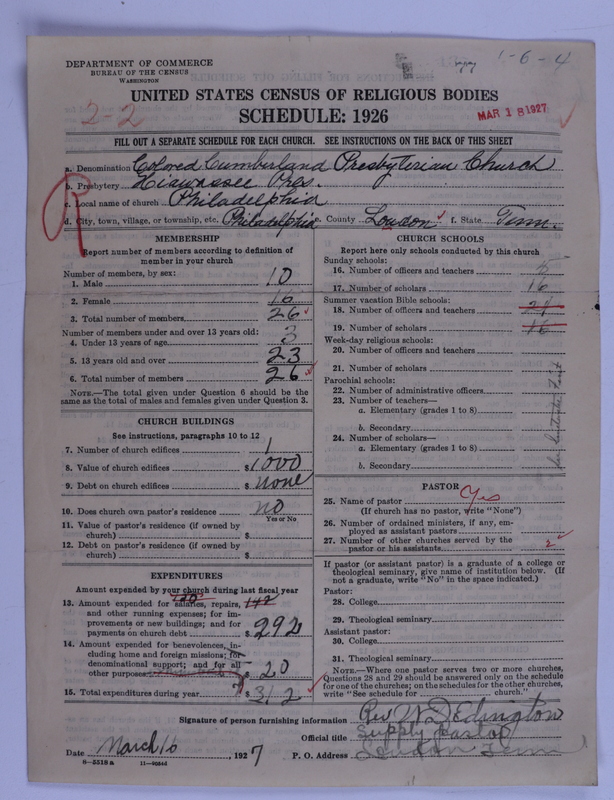 DEPARTMENT OF COMMERCE
BUREAU OF THE CENSUS
WASHINGTON
1-6-4
UNITED STATES CENSUS OF RELIGIOUS BODIES
SCHEDULE: 1926
MAR 18 1927
2-2
FILL OUT A SEPARATE SCHEDULE FOR EACH CHURCH. SEE INSTRUCTIONS ON THE BACK OF THIS SHEET
R
a. Denomination Colored Cumberland Presbyterian Church
b. Presbytery Hiawassee Pres.
c. Local name of church Philadelphia
d. City, town, village, or township, etc. Philadelphia e. County Loudon f. State Tenn.
MEMBERSHIP
Report number of members according to definition of
member in your church
Number of members, by sex:
1. Male 10
2. Female 16
3. Total number of members 26
Number of members under and over 13 years old:
4. Under 13 years of age 3
5. 13 years old and over 23
6. Total number of members 26
NOTE.—The total given under Question 6 should be the
same as the total of males and females given under Question 3.
CHURCH BUILDINGS
See instructions, paragraphs 10 to 12
7. Number of church edifices 1
8. Value of church edifices $ 1000
9. Debt on church edifices $ none
10. Does church own pastor's residence no
Yes or No
11. Value of pastor's residence (if owned by
church) $
12. Debt on pastor's residence (if owned by
church) $
EXPENDITURES
Amount expended by your church during last fiscal year
13. Amount expended for salaries, repairs,
and other running expenses; for im-
provements or new buildings; and for
payments on church debt $ 292
14. Amount expended for benevolences, in-
cluding home and foreign missions; for
denominational support; and for all
other purposes $ 20
15. Total expenditures during year $ 312
CHURCH SCHOOLS
Report here only schools conducted by this church
Sunday schools:
16. Number of officers and teachers 5
17. Number of scholars 16
Summer vacation Bible schools:
18. Number of officers and teachers
19. Number of scholars
Week-day religious schools:
20. Number of officers and teachers
21. Number of scholars
Parochial schools:
22. Number of administrative officers
23. Number of teachers—
a. Elementary (grades 1 to 8)
b. Secondary
24. Number of scholars—
a. Elementary (grades 1 to 8)
b. Secondary
PASTOR
25. Name of pastor Yes
(If church has no pastor, write "None")
26. Number of ordained ministers, if any, em-
ployed as assistant pastors
27. Number of other churches served by the
pastor or his assistants 2
If pastor (or assistant pastor) is a graduate of a college or
theological seminary, give name of institution below. (If
not a graduate, write "No" in the space indicated.)
Pastor:
28. College
29. Theological seminary
Assistant pastor:
30. College
31. Theological seminary
NOTE.—Where one pastor serves two or more churches,
Questions 28 and 29 should be answered only on the schedule
for one of the churches; on the schedules for the other churches,
write "See schedule for church."
Signature of person furnishing information Rev W. D. Edington
Official title Supply Pastor
Date March 16, 1927 P. O. Address Loudon Tenn
8-5518 a